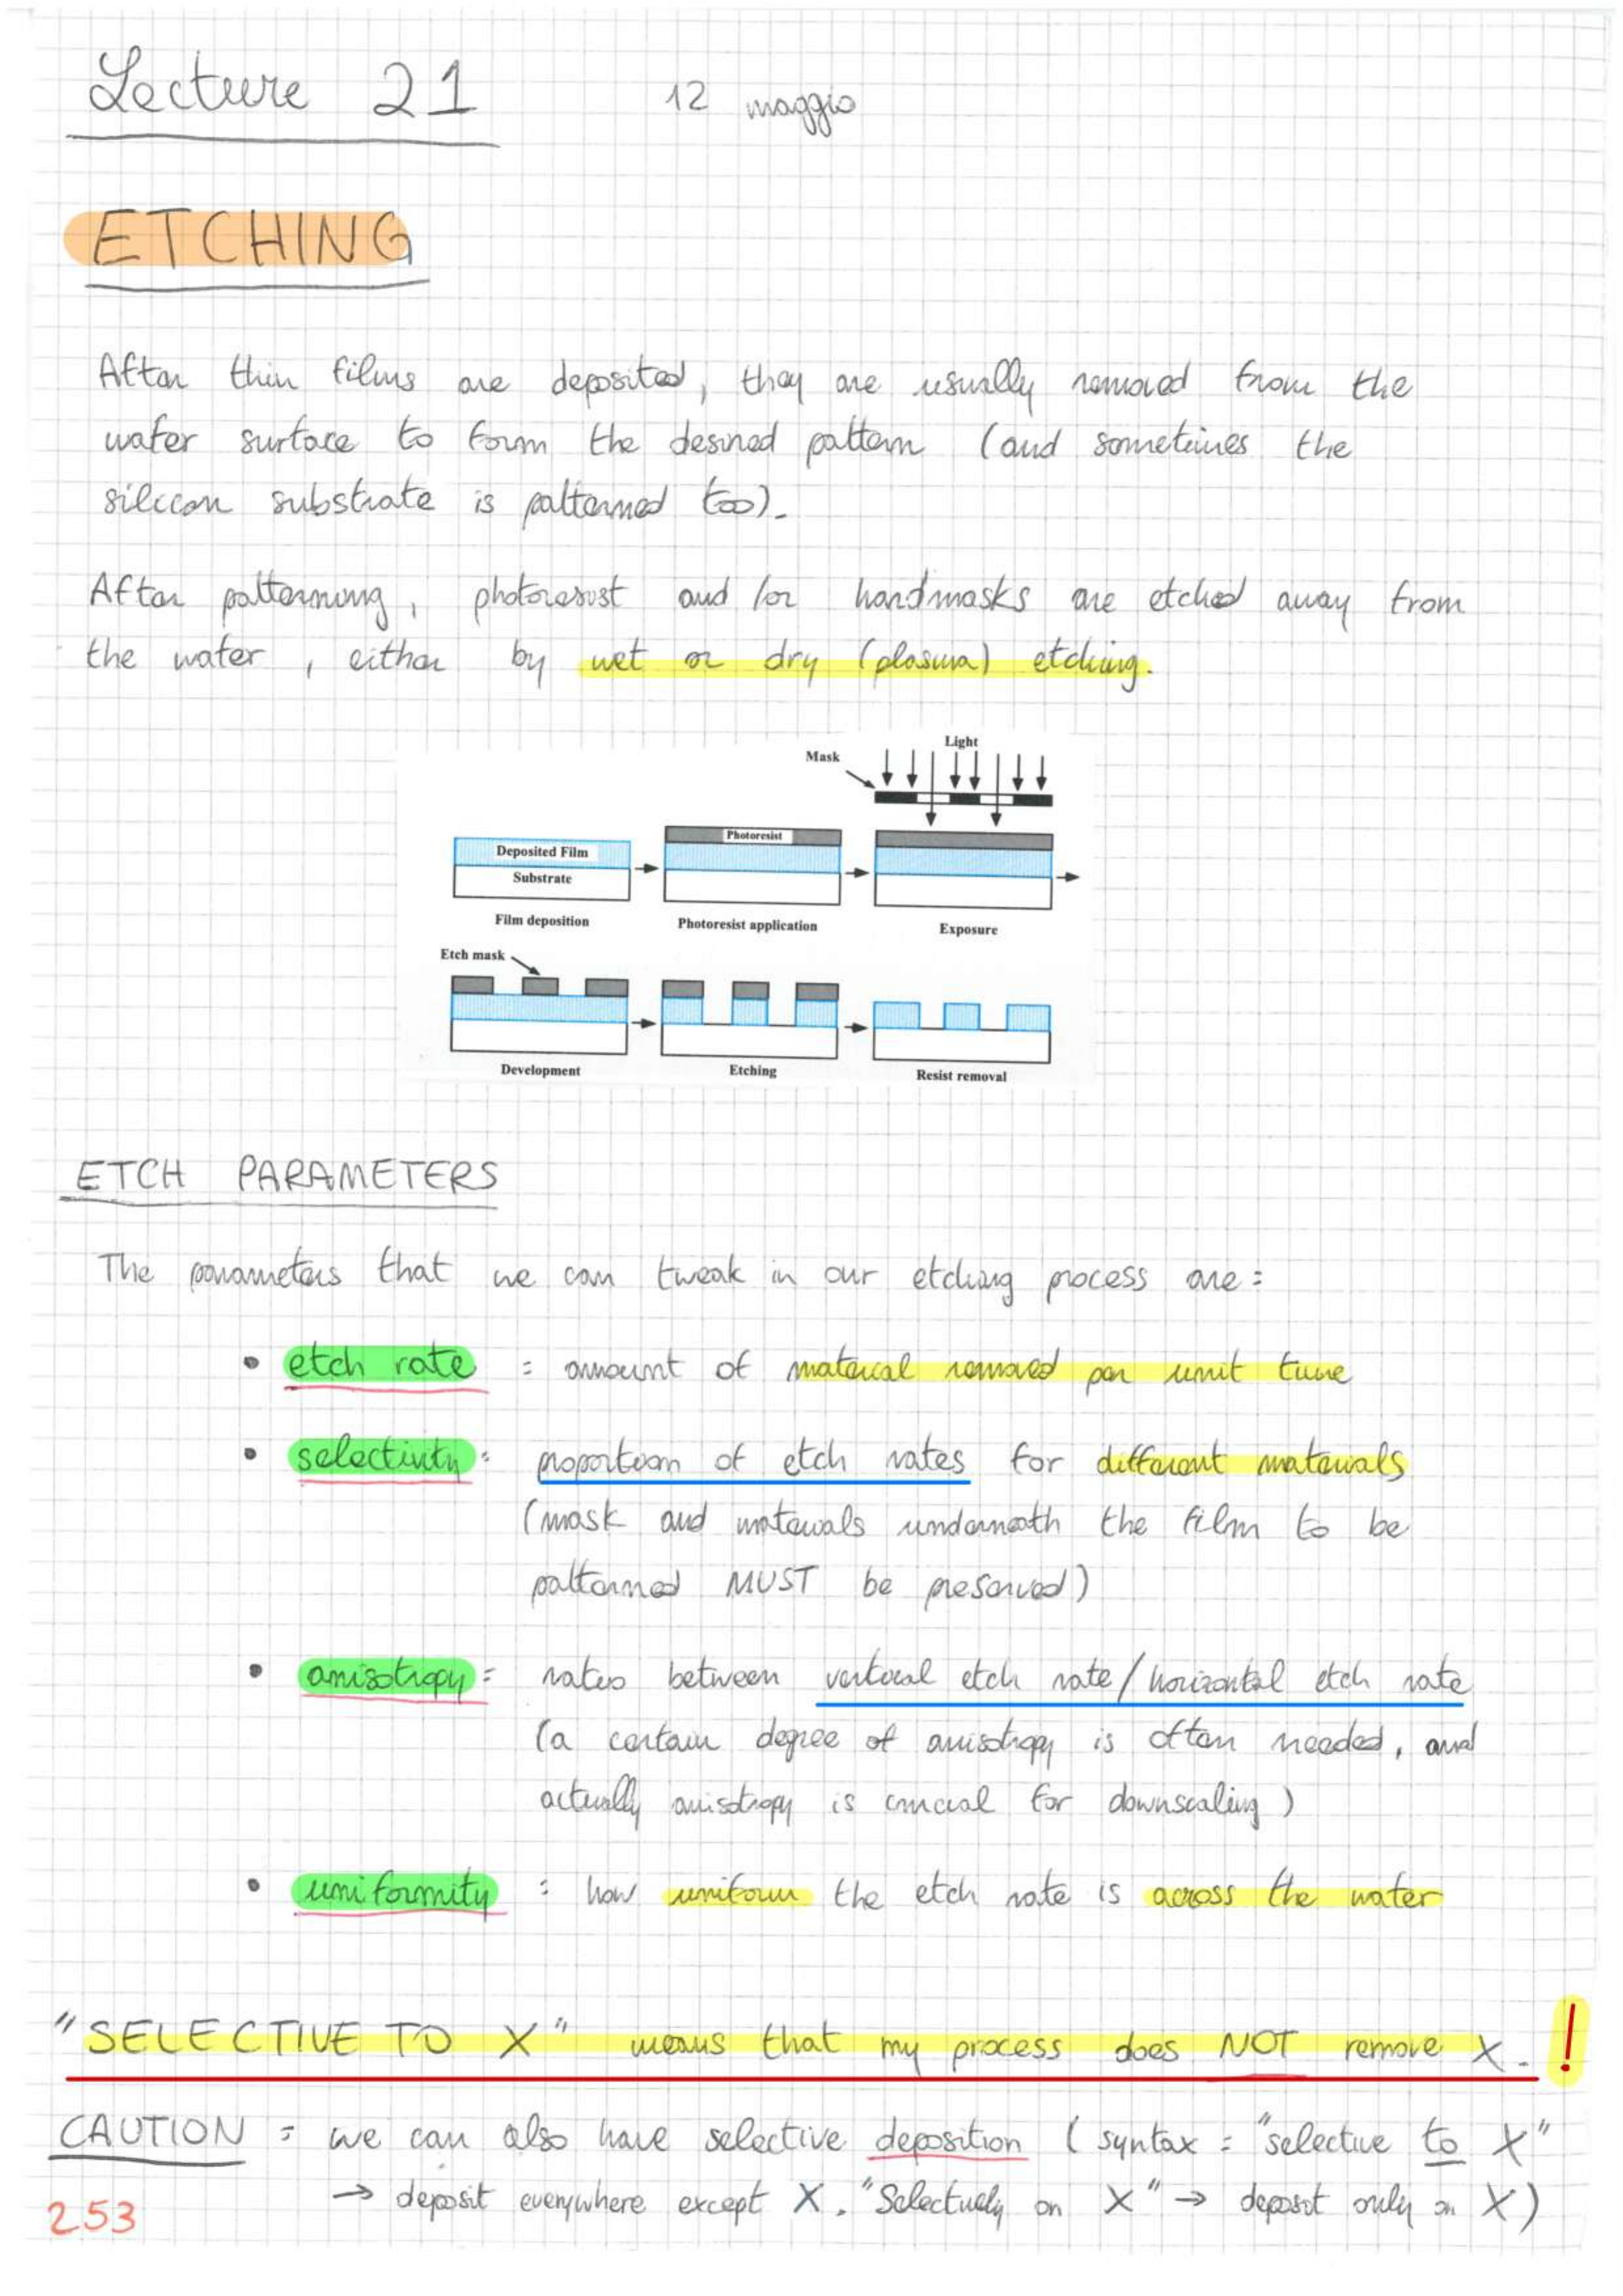 Lecture 21 12 maggio
ETCHING
After thin films are deposited, they are usually removed from the
wafer surface to form the desired pattern (and sometimes the
silicon substrate is patterned too).
After patterning, photoresist and/or hardmasks are etched away from
the wafer, either by wet or dry (plasma) etching.
Mask Light
Deposited Film
Substrate
Film deposition
Photoresist
Photoresist application
Exposure
Etch mask
Development
Etching
Resist removal
ETCH PARAMETERS
The parameters that we can tweak in our etching process are:
• etch rate : amount of material removed per unit time
• selectivity: proportion of etch rates for different materials
(mask and materials underneath the film to be
patterned MUST be preserved)
• anisotropy: ratio between vertical etch rate/horizontal etch rate
(a certain degree of anisotropy is often needed, and
actually anisotropy is crucial for downscaling)
• uniformity : how uniform the etch rate is across the wafer
"SELECTIVE TO X" means that my process does NOT remove X. !
CAUTION : we can also have selective deposition (syntax: "selective to X"
→ deposit everywhere except X. "Selectively on X" → deposit only on X)
253